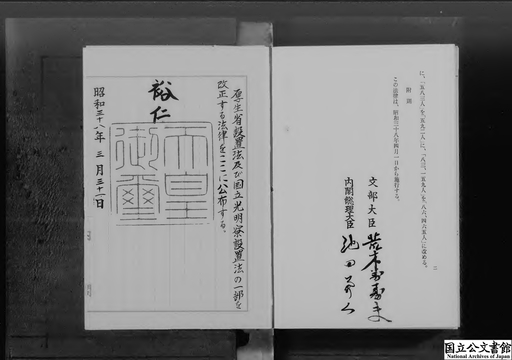 に、「五八三人」を「五九二人」に、「八三、一五九人」を「八六、四六五人」に改める。
附則
この法律は、昭和三十八年四月一日から施行する。
文部大臣 荒木萬壽夫
内閣総理大臣 池田勇人
厚生省設置法及び国立光明寮設置法の一部を
改正する法律をここに公布する。
裕仁
天皇御璽
昭和三十八年三月三十一日
国立公文書館
National Archives of Japan